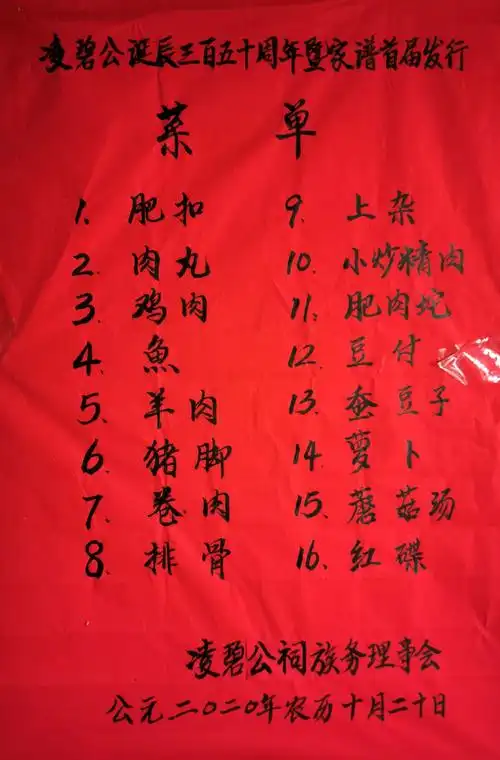 凌碧公诞辰三百五十周年暨家谱首届发行
菜 单
1. 肥扣
2. 肉丸
3. 鸡肉
4. 魚
5. 羊肉
6. 猪脚
7. 卷肉
8. 排骨
9. 上杂
10. 小炒精肉
11. 肥肉坨
12. 豆付
13. 蚕豆子
14. 萝卜
15. 蘑菇汤
16. 红碟
凌碧公祠族务理事会
公元二〇二〇年农历十月二十日